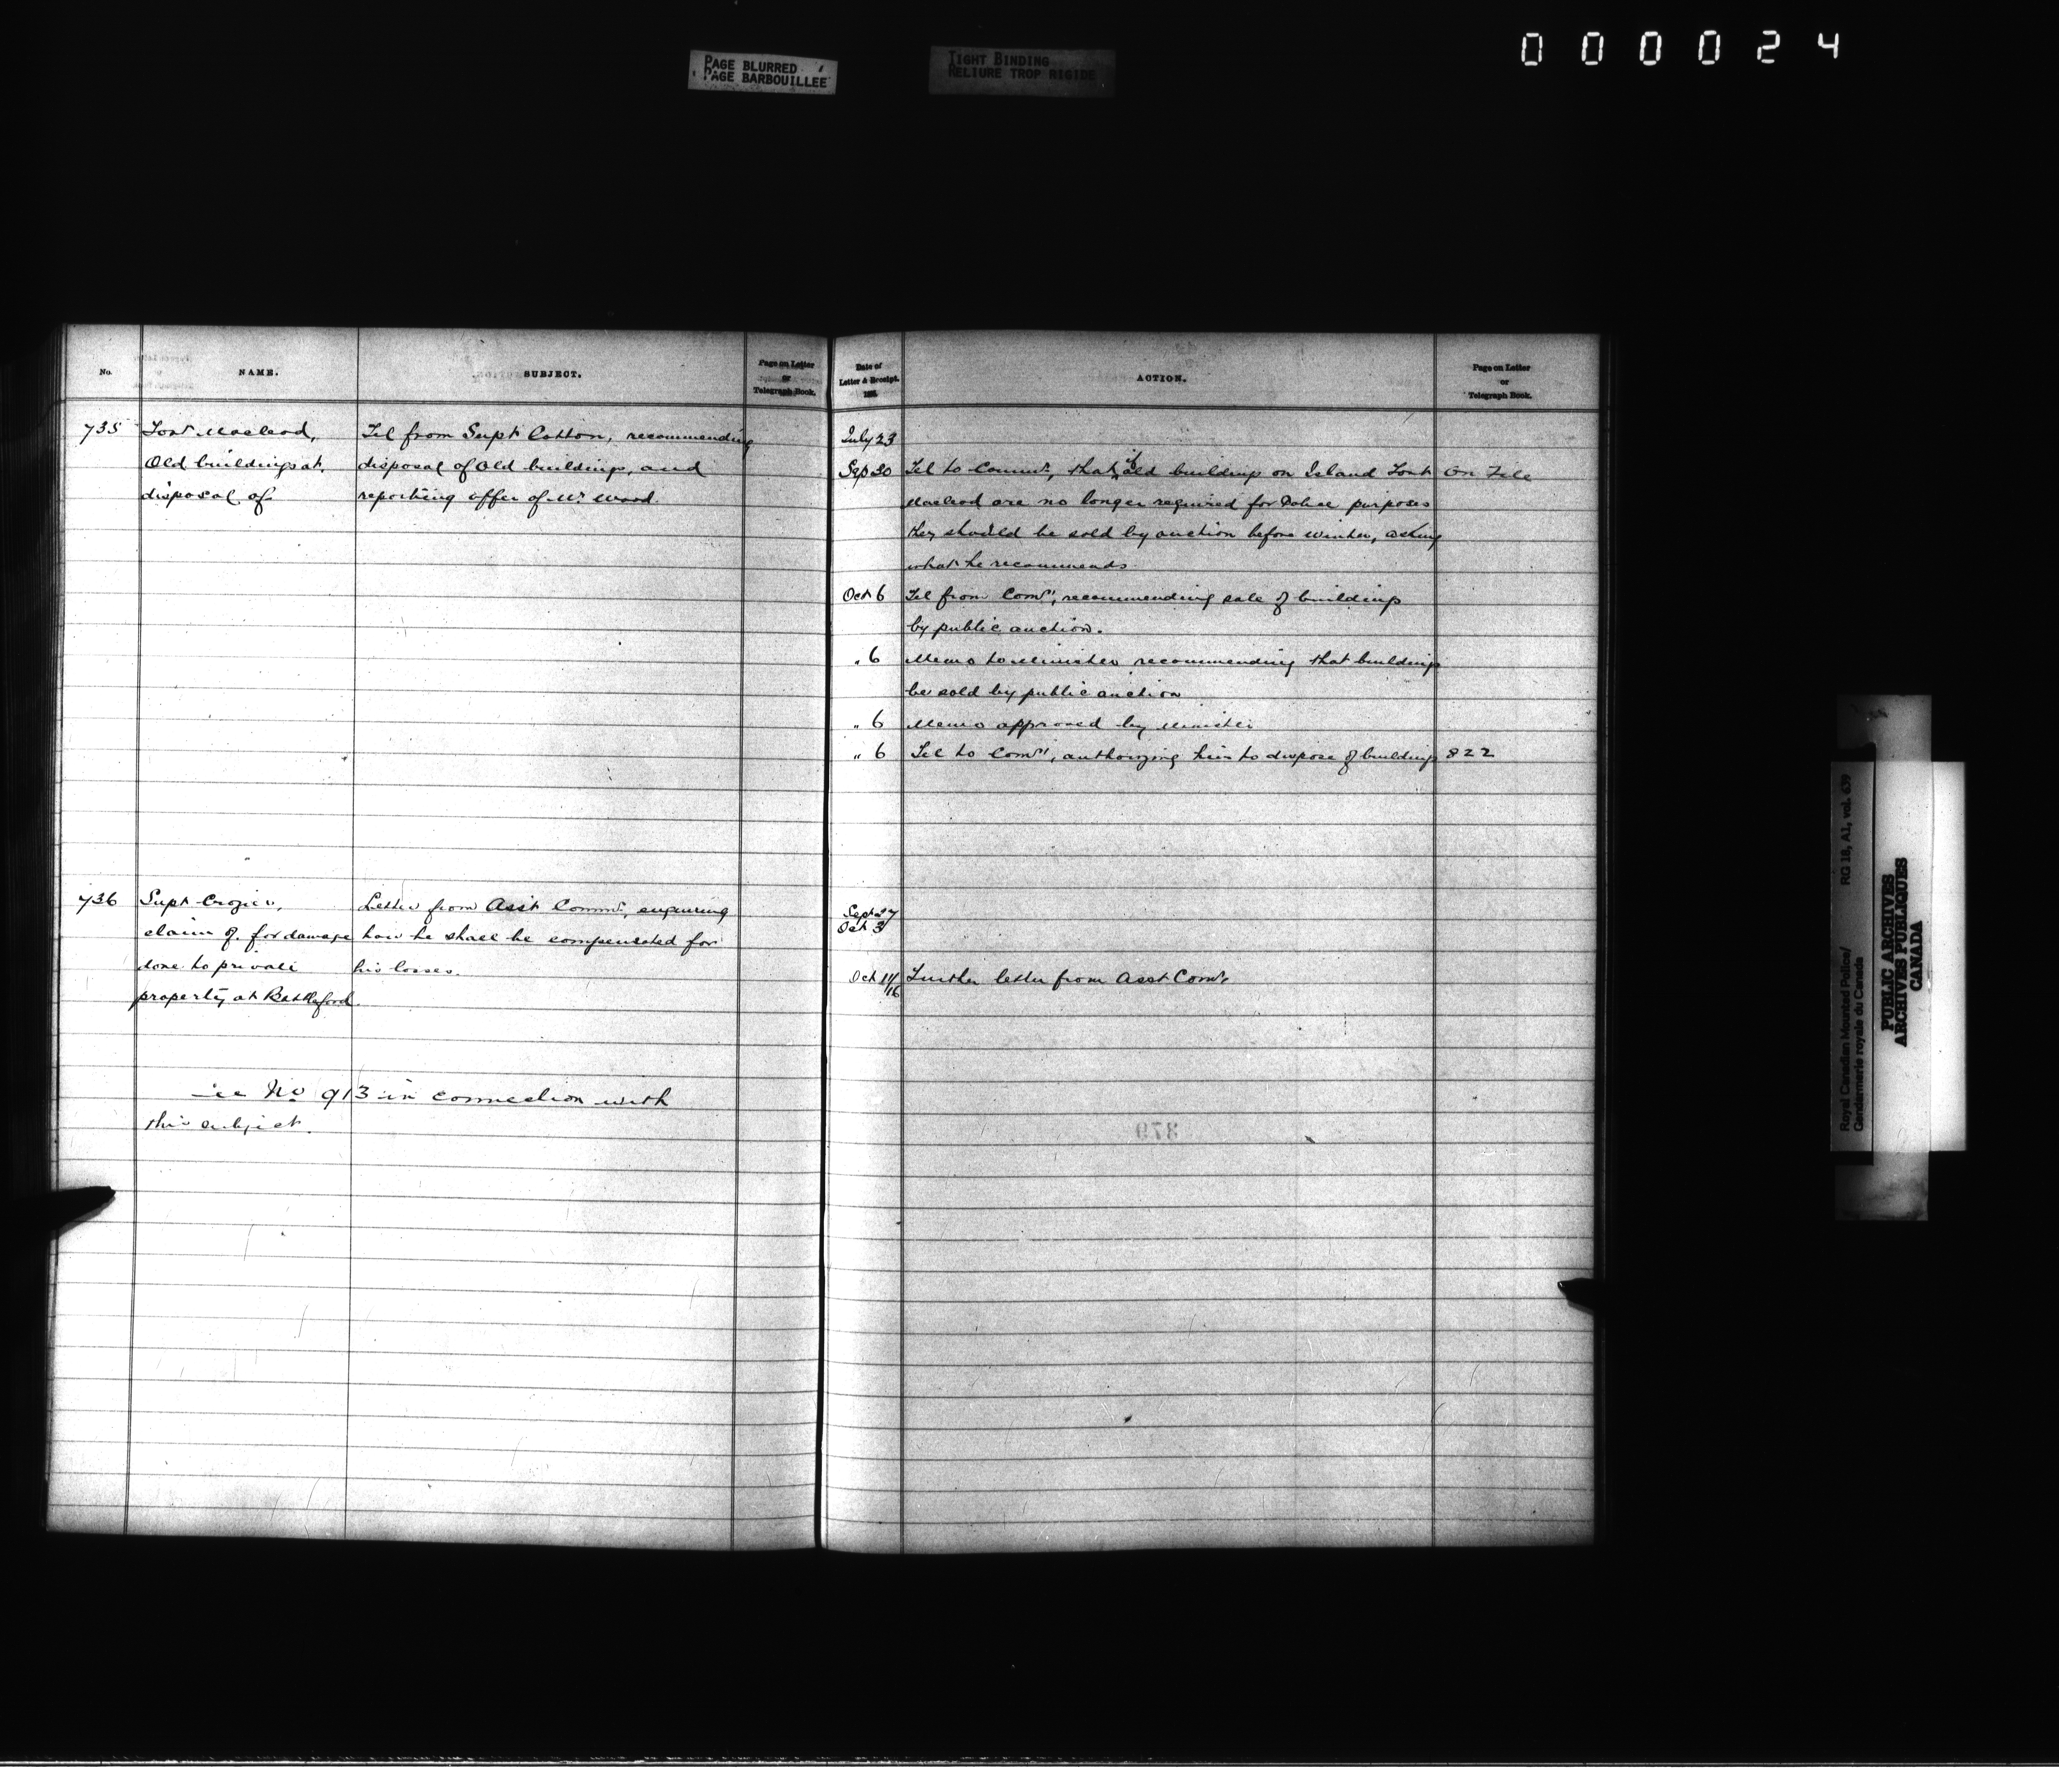 000024
PAGE BLURRED
PAGE BARBOUILLEE
TIGHT BINDING
RELIURE TROP RIGIDE
No.
NAME.
SUBJECT.
Page on Letter
or
Telegraph Book.
Date of
Letter & Receipt.
188
ACTION.
Page on Letter
or
Telegraph Book.
735
Fort Macleod,
Old buildings at,
disposal of
Tel from Supt Cotton, recommending
disposal of old buildings, and
reporting offer of Mr Wood.
July 23
Sep 30 Tel to Commr, that if old buildings on Island Fort On File
Macleod are no longer required for Police purposes
they should be sold by auction before winter, asking
what he recommends
Oct 6 Tel from Comr, recommending sale of buildings
by public auction.
" 6 Memo to Minister recommending that buildings
be sold by public auction
" 6 Memo approved by Minister
" 6 Tel to Comr, authorizing him to dispose of buildings 822
736
Supt Crozier,
claim of, for damage
done to private
property at Battleford.
Letter from Asst Commr, enquiring
how he shall be compensated for
his losses.
Sept 27
Oct 3
Oct 11/16 Further letter from Asst Comr.
See No 913 in connection with
this subject.
379
Royal Canadian Mounted Police/ RG 18, A1, vol. 639
Gendarmerie royale du Canada
PUBLIC ARCHIVES
ARCHIVES PUBLIQUES
CANADA